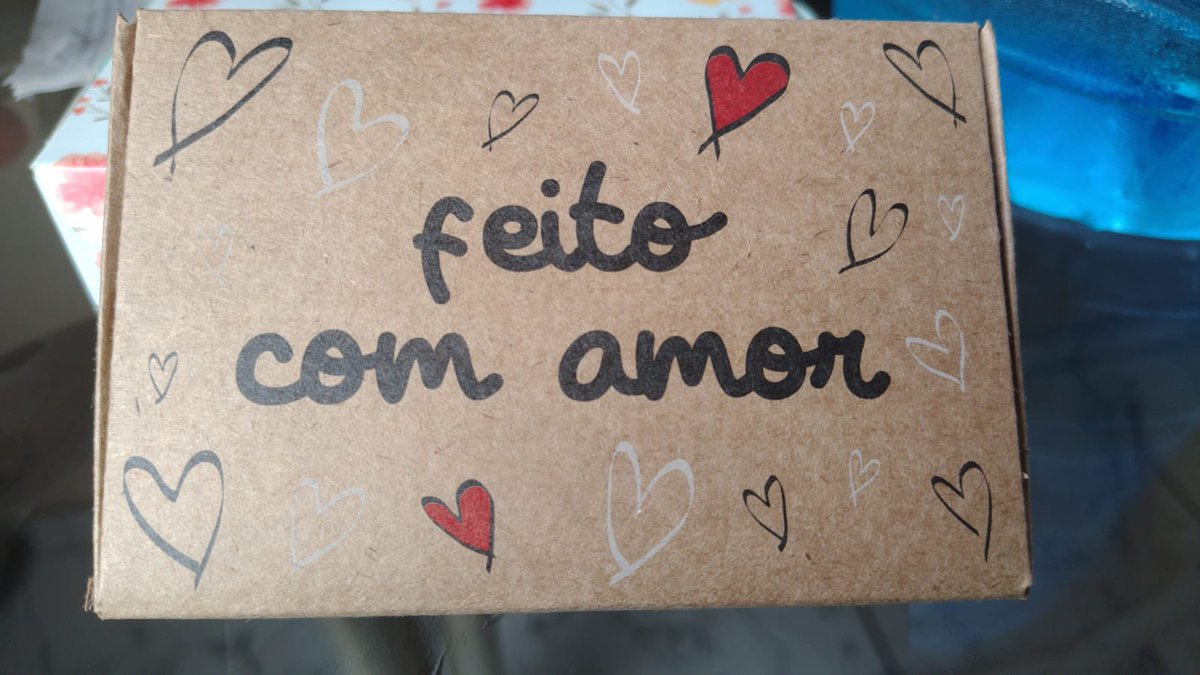 feito
com amor